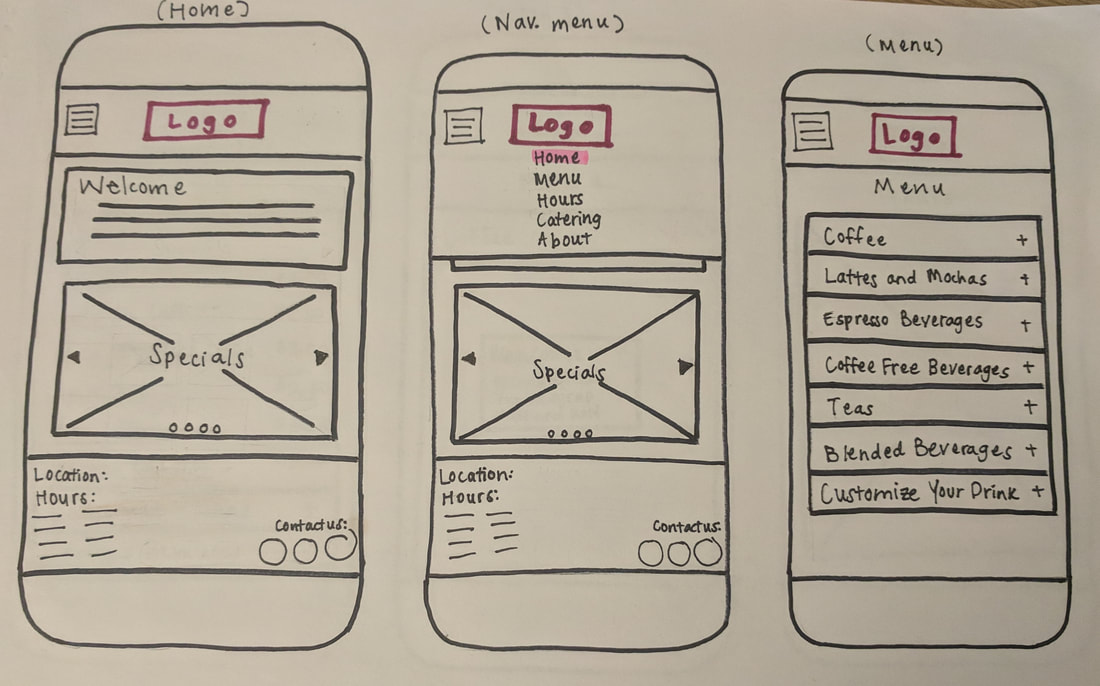 (Home)
Logo
Welcome
Specials
Location:
Hours:
Contact us:
(Nav. menu)
Logo
Home
Menu
Hours
Catering
About
Specials
Location:
Hours:
Contact us:
(Menu)
Logo
Menu
Coffee +
Lattes and Mochas +
Espresso Beverages +
Coffee Free Beverages +
Teas +
Blended Beverages +
Customize Your Drink +